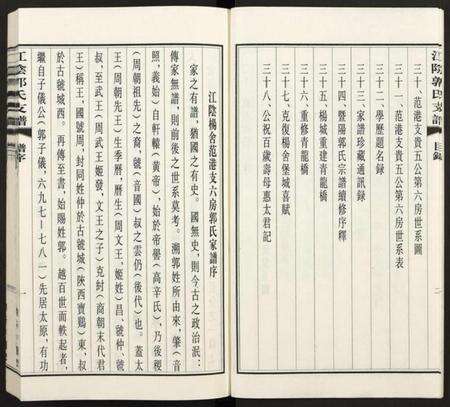 江陰郭氏支譜
目錄
二
三十、范港支貴五公第六房世系圖
三十一、范港支貴五公第六房世系表
三十二、學歷題名錄
三十三、家譜珍藏通訊錄
三十四、暨陽郭氏宗譜續修序釋
三十五、楊城重建青龍橋
三十六、重修青龍橋
三十七、克復楊舍堡城喜賦
三十八、公祝百歲壽母惠太君記
江陰楊舍范港支六房郭氏家譜序
家之有譜，猶國之有史。國無史，則今古之政治泯；
家無譜，則前後之世系莫考。溯郭姓所由來，肇（音
照，義始）自軒轅（黃帝），始於帝嚳（高辛氏），乃後稷
（周朝祖先）之裔，虢（音國）叔之雲仍（後代）也。蓋太
王（周朝先王）生季曆，曆生（周文王，姬姓）昌、虢仲、虢
叔，至武王（周武王姬發，文王之子）克封（商朝末代君
王）稱王，國號周，封同姓仲於古虢城（陝西寶鷄）東，叔
於古虢城西。再傳至書，始賜姓郭。越百世而軼起者，
繼自子儀公（郭子儀，六九七－七八一）先居太原，有功
江陰郭氏支譜
譜序
一